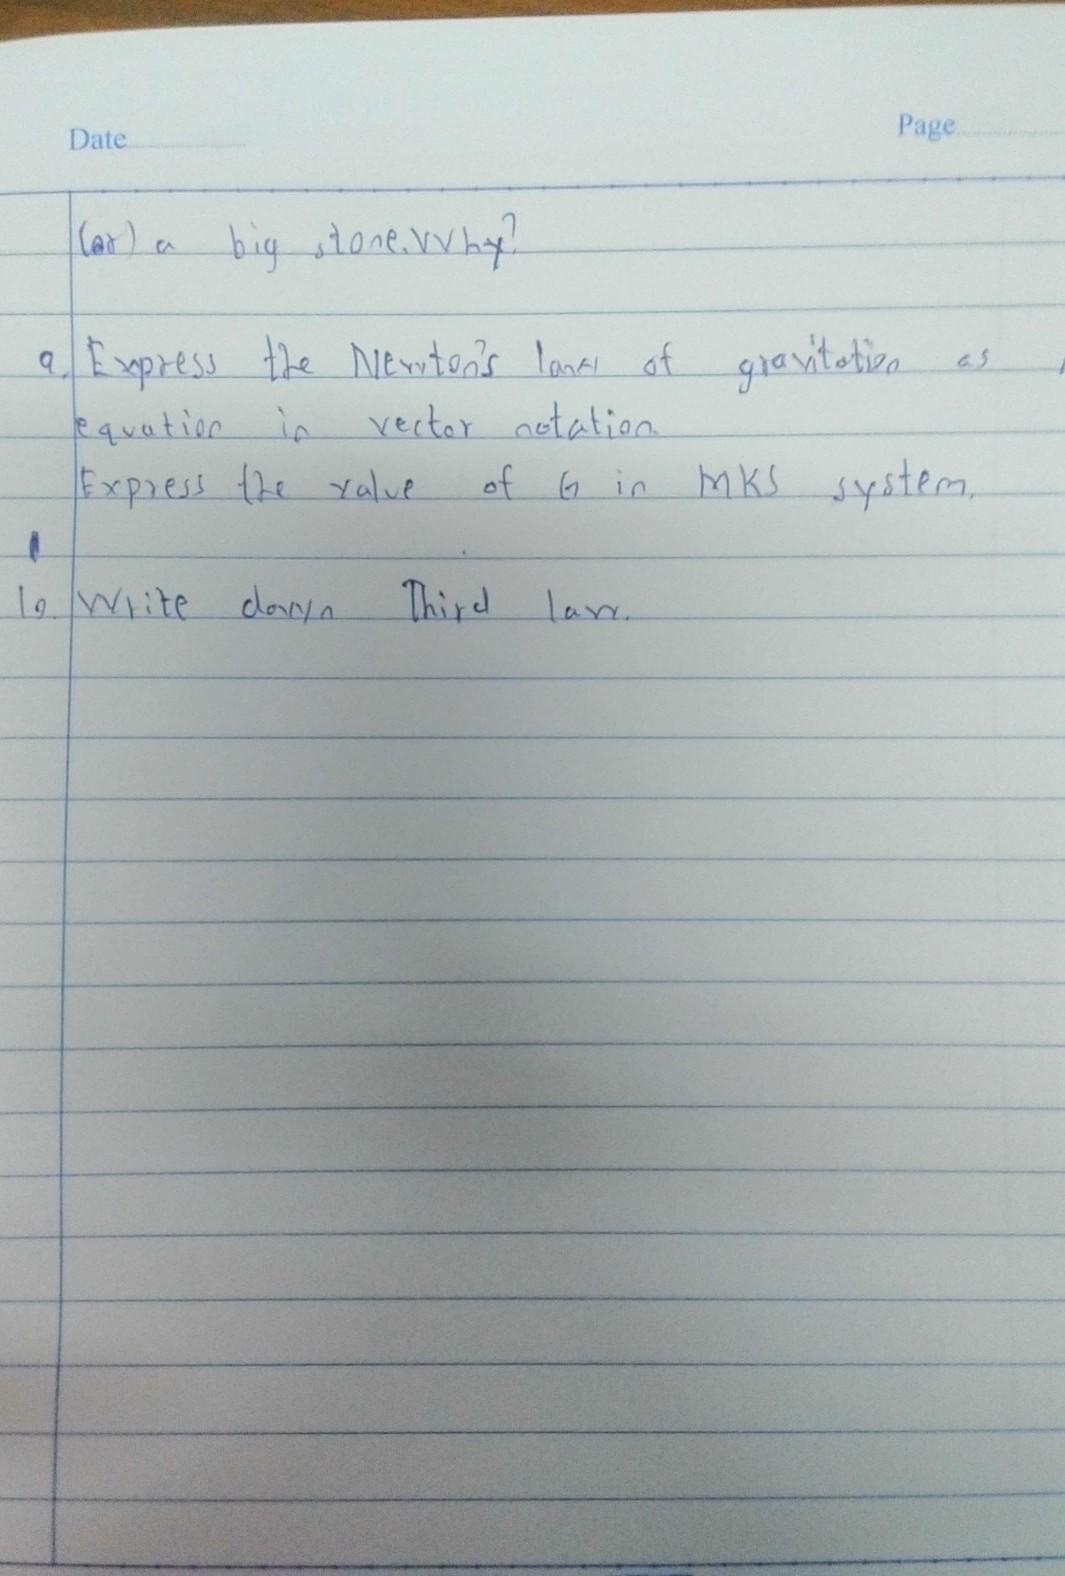 Date
Page
(or) a big stone. Why?
9. Express the Newton's law of gravitation as
equation in vector notation.
Express the value of G in MKS system.
10. Write down Third law.